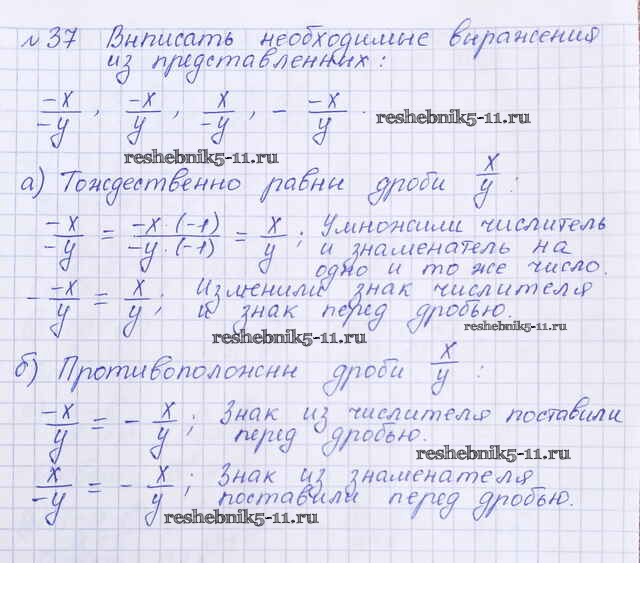 № 37 Выписать необходимые выражения
из представленных:
-x/-y, -x/y, x/-y, - -x/y. reshebnik5-11.ru
reshebnik5-11.ru
а) Тождественно равны дроби x/y:
-x/-y = -x·(-1)/-y·(-1) = x/y; Умножили числитель
и знаменатель на
одно и то же число.
- -x/y = x/y; Изменили знак числителя
и знак перед дробью.
reshebnik5-11.ru
reshebnik5-11.ru
б) Противоположны дроби x/y:
-x/y = - x/y; Знак из числителя поставили
перед дробью.
reshebnik5-11.ru
x/-y = - x/y; Знак из знаменателя
поставили перед дробью.
reshebnik5-11.ru